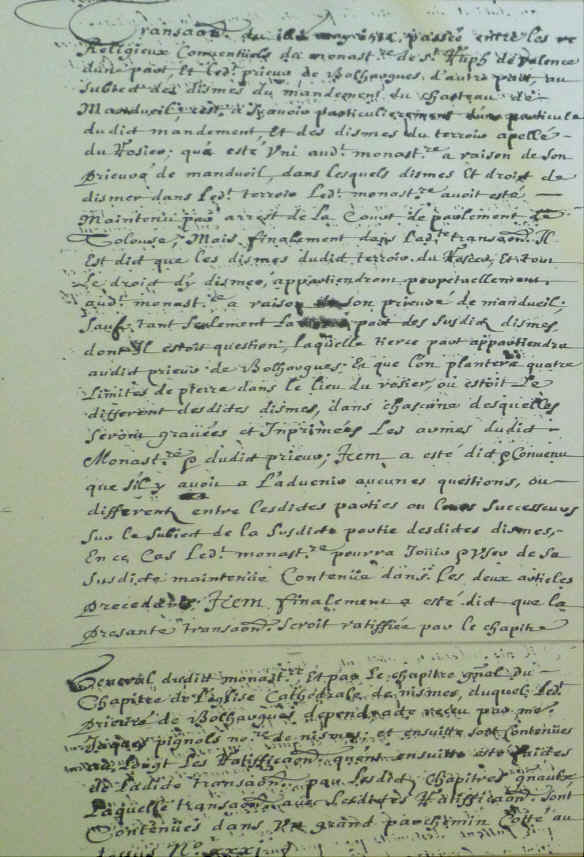 Transaaon. du passée entre les ve
Religieux Conventuels du monast.re de s.t Ruph de valence
dune part, Et led.t prieur de Bolhargues d'autre part, au
subiect des dismes du mandement du chasteau de
Mandueil, particulierement dune particule
dudict mandement, et des dismes du terroir apellé
du Rosier; qua esté Uni aud.t monast.re a raison de son
prieuré de mandueil, dans lesquels dismes Et droict de
dismer dans led.t terroir Led.t monast.re avoit esté
Maintenu par arrest de la Court de parlement de
Tolouse, Mais finalement dans lad.te transaaon. Il
Est dict que les dismes dudict terroir du Rosier, Et tout
Le droict dy dismer, appartiendront perpetuellement,
aud.t monast.re a raison de son prieuré de mandueil;
sauf, tant seulement La part des susdict dismes,
dont Il estoit question, laquelle tierce part appartiendra
audict prieur de Bolhargues; Et que lon plantera quatre
Limites de pierre dans le lieu du rosier, ou estoit Le
different desdites dismes, dans chascune desquelles
seront gravées et Inprimées Les armes dudict
Monast.re & dudict prieur; Item a esté dict & Convenu
que s'il y avoit a L'advenir aucunes questions, ou
different entre lesdictes parties ou leurs successeurs
sur le subiect de la susdicte partie desdictes dismes,
En ce Cas Led.t monast.re pourra Jouir & User de sa
susdicte maintenüe Contenüe dans Les deux articles
precedents; Item finalement a esté dict que la
presante transaaon. seroit ratiffiée par le chapitre
General dudict monast.re Et par Le chapitre gnal du
Chapitre de l'eglise Cathedrale de nismes, duquel Led.t
prieuré de Bolhargues depend; acte receu par me.
Jaques pignols no.re de nismes; et ensuitte sont Contenües
au Long Les Ratifficaon. ensuitte esté faictes
de Ladicte transaaon. par Lesdict Chapitres gnaulx
Laquelle transaaon. avec Lesdictes Ratifficaon. sont
Contenües dans Un grand parchemin Cotté au
dessus N.o xxxj